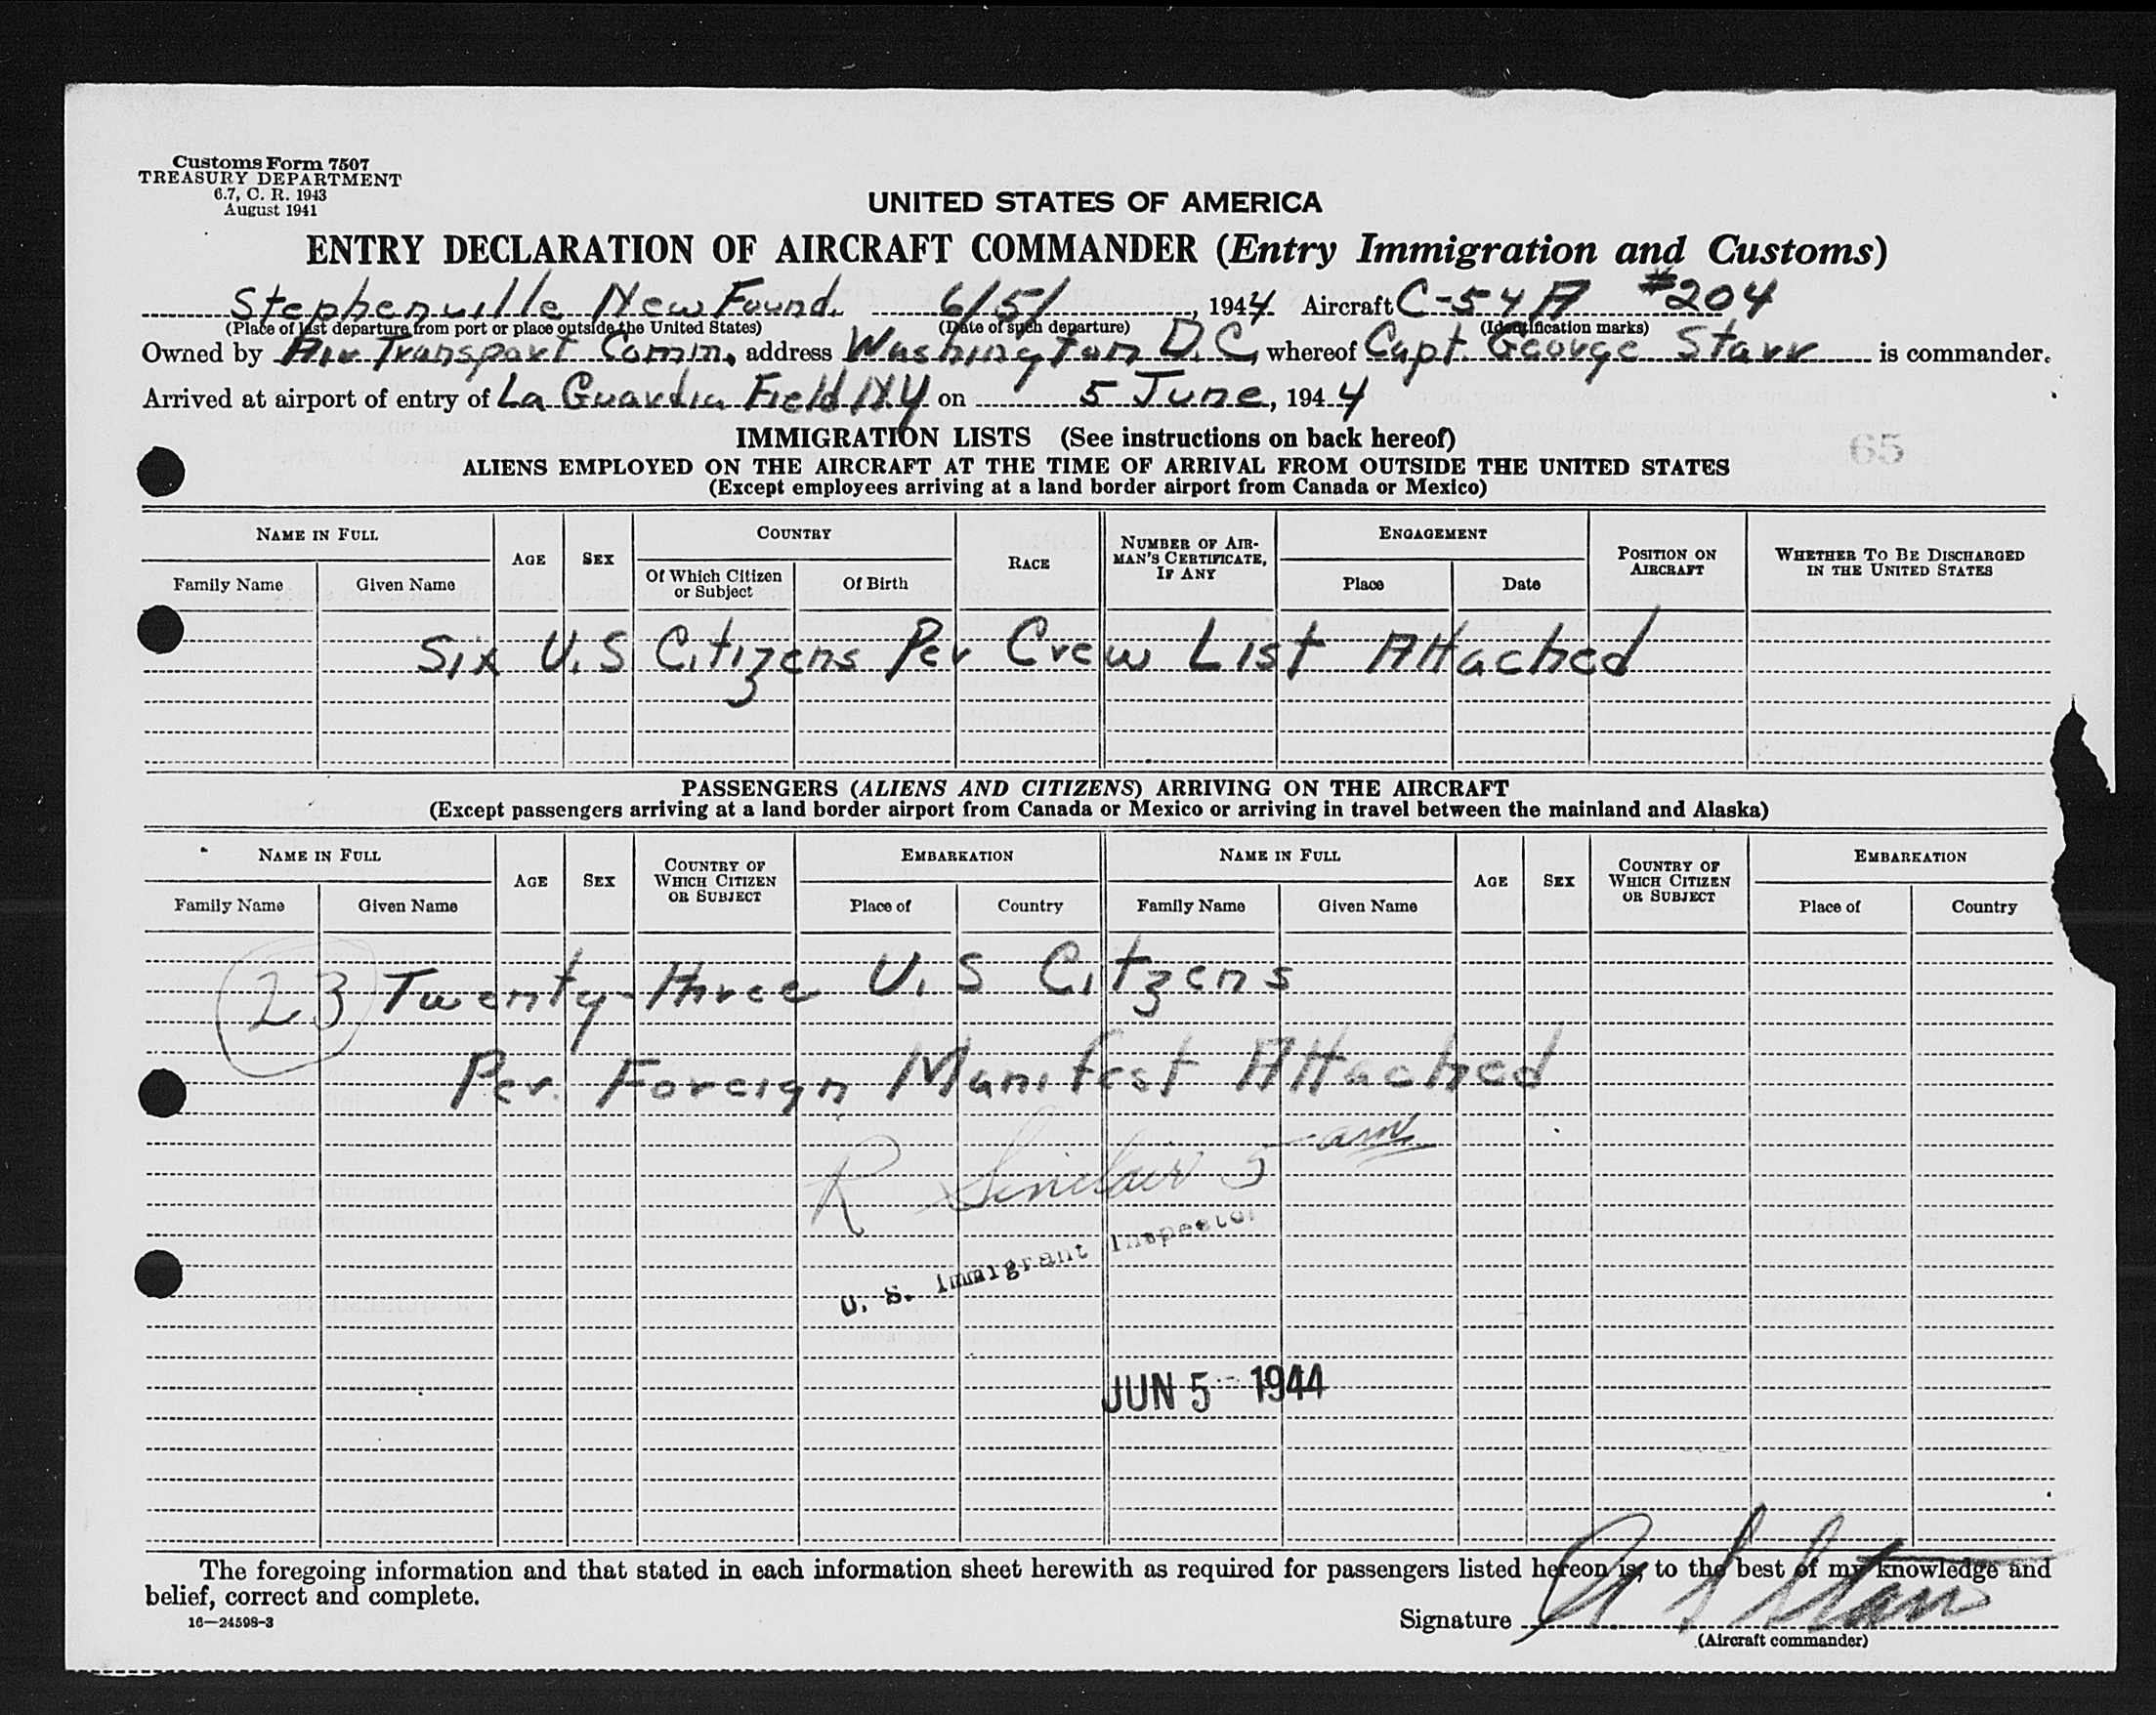 Customs Form 7507
TREASURY DEPARTMENT
6.7, C. R. 1943
August 1941
UNITED STATES OF AMERICA
ENTRY DECLARATION OF AIRCRAFT COMMANDER (Entry Immigration and Customs)
Stephenville New Found. 6/5/, 1944 Aircraft C-54A #204
(Place of last departure from port or place outside the United States) (Date of such departure) (Identification marks)
Owned by Air Transport Comm. address Washington D.C, whereof Capt. George Starr is commander.
Arrived at airport of entry of La Guardia Field NY on 5 June, 1944
IMMIGRATION LISTS (See instructions on back hereof)
65
ALIENS EMPLOYED ON THE AIRCRAFT AT THE TIME OF ARRIVAL FROM OUTSIDE THE UNITED STATES
(Except employees arriving at a land border airport from Canada or Mexico)
NAME IN FULL
Family Name
Given Name
AGE
SEX
COUNTRY
Of Which Citizen or Subject
Of Birth
RACE
NUMBER OF AIR-
MAN'S CERTIFICATE,
IF ANY
ENGAGEMENT
Place
Date
POSITION ON
AIRCRAFT
WHETHER TO BE DISCHARGED
IN THE UNITED STATES
Six U.S Citizens Per Crew List Attached
PASSENGERS (ALIENS AND CITIZENS) ARRIVING ON THE AIRCRAFT
(Except passengers arriving at a land border airport from Canada or Mexico or arriving in travel between the mainland and Alaska)
NAME IN FULL
Family Name
Given Name
AGE
SEX
COUNTRY OF
WHICH CITIZEN
OR SUBJECT
EMBARKATION
Place of
Country
NAME IN FULL
Family Name
Given Name
AGE
SEX
COUNTRY OF
WHICH CITIZEN
OR SUBJECT
EMBARKATION
Place of
Country
23 Twenty-three U.S Citzens
Per. Foreign Manifest Attached
R Sinclair 5 am
U. S. Immigrant Inspector
JUN 5 1944
The foregoing information and that stated in each information sheet herewith as required for passengers listed hereon is, to the best of my knowledge and
belief, correct and complete.
16—24598-3
Signature G S Starr
(Aircraft commander)